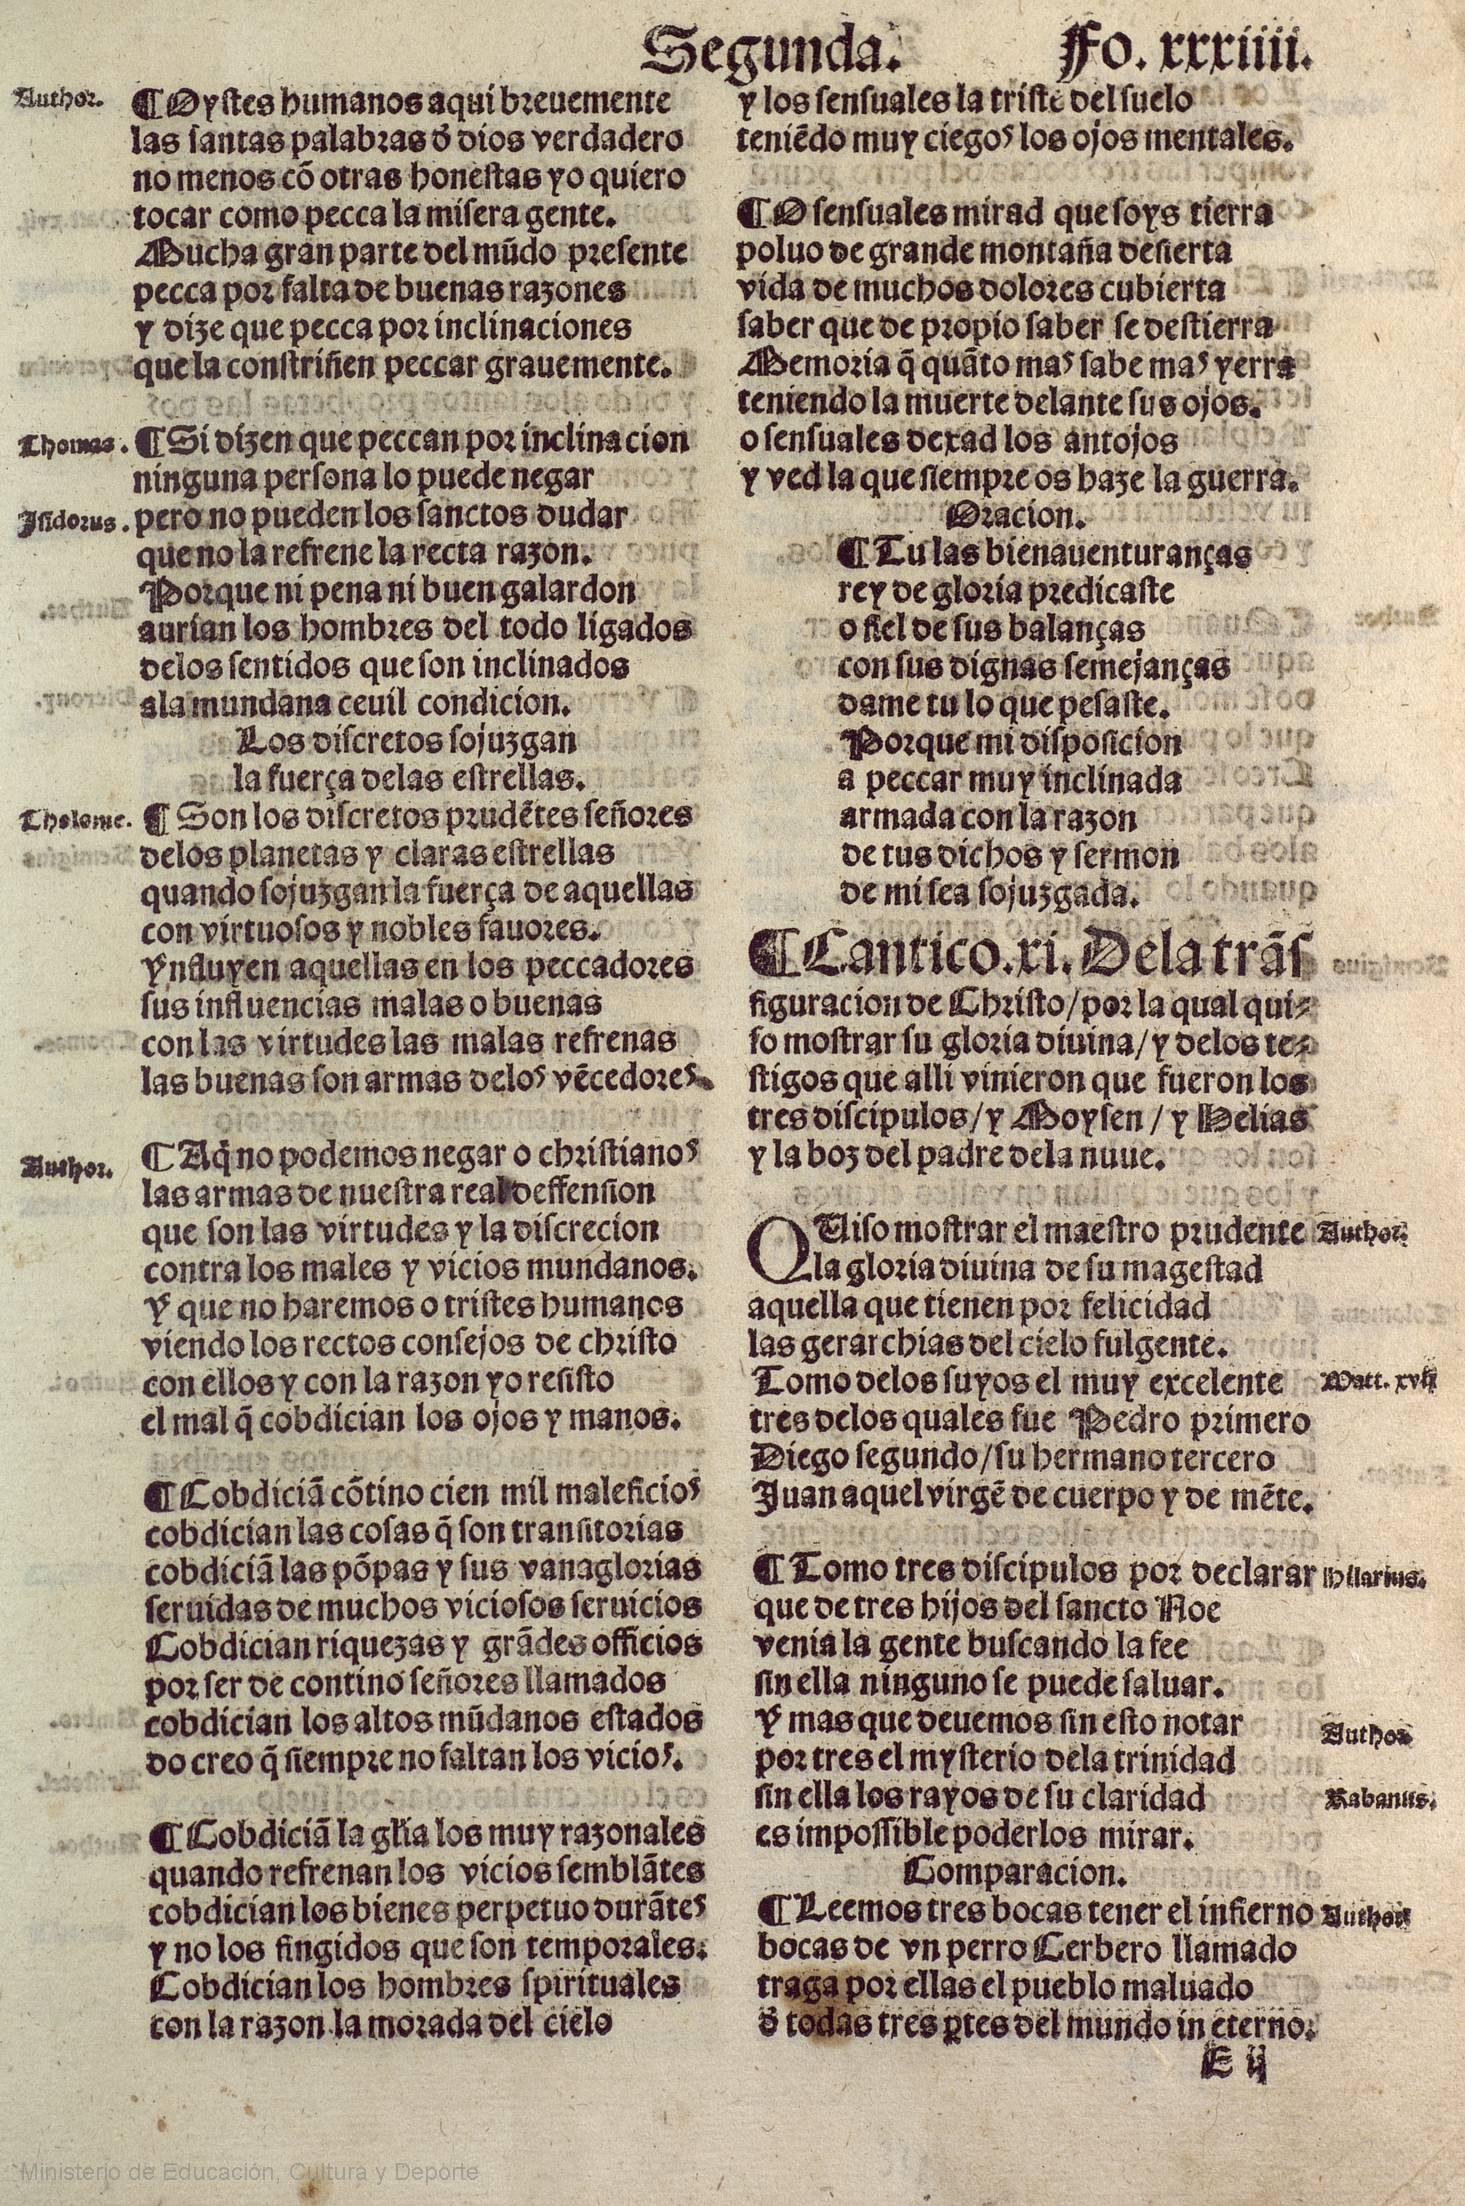 Segunda. Fo. xxxiiii.
Author.
¶ Oystes humanos aqui breuemente
las santas palabras d̃ dios verdadero
no menos cõ otras honestas yo quiero
tocar como pecca la misera gente.
Mucha gran parte del mũdo presente
pecca por falta de buenas razones
y dize que pecca por inclinaciones
que la constriñen peccar grauemente.
Thomas.
¶ Si dizen que peccan por inclinacion
ninguna persona lo puede negar
Isidorus.
pero no pueden los sanctos dudar
que no la refrene la recta razon.
Porque ni pena ni buen galardon
aurian los hombres del todo ligados
delos sentidos que son inclinados
ala mundana ceuil condicion.
Los discretos sojuzgan
la fuerça delas estrellas.
Tholome.
¶ Son los discretos prudẽtes señores
delos planetas y claras estrellas
quando sojuzgan la fuerça de aquellas
con virtuosos y nobles fauores.
Ynfluyen aquellas en los peccadores
sus influencias malas o buenas
con las virtudes las malas refrenas
las buenas son armas delos vẽcedores.
Author.
¶ Aq̃ no podemos negar o christianos
las armas de nuestra real deffension
que son las virtudes y la discrecion
contra los males y vicios mundanos.
Y que no haremos o tristes humanos
viendo los rectos consejos de christo
con ellos y con la razon yo resisto
el mal q̃ cobdician los ojos y manos.
¶ Cobdiciã cõtino cien mil maleficios
cobdician las cosas q̃ son transitorias
cobdiciã las põpas y sus vanaglorias
seruidas de muchos viciosos seruicios
Cobdician riquezas y grãdes officios
por ser de contino señores llamados
cobdician los altos mũdanos estados
do creo q̃ siempre no faltan los vicios.
¶ Cobdiciã la gl̃ia los muy razonales
quando refrenan los vicios semblãtes
cobdician los bienes perpetuo durãtes
y no los fingidos que son temporales.
Cobdician los hombres spirituales
con la razon la morada del cielo
y los sensuales la triste del suelo
teniẽdo muy ciegos los ojos mentales.
¶ O sensuales mirad que soys tierra
poluo de grande montaña desierta
vida de muchos dolores cubierta
saber que de propio saber se destierra
Memoria q̃ quãto mas sabe mas yerra
teniendo la muerte delante sus ojos.
o sensuales dexad los antojos
y ved la que siempre os haze la guerra.
Oracion.
¶ Tu las bienauenturanças
rey de gloria predicaste
o fiel de sus balanças
con sus dignas semejanças
dame tu lo que pesaste.
Porque mi disposicion
a peccar muy inclinada
armada con la razon
de tus dichos y sermon
de mi sea sojuzgada.
¶ Cantico. xi. Dela trãs
figuracion de Christo/por la qual qui-
so mostrar su gloria diuina/y delos te-
stigos que alli vinieron que fueron los
tres discipulos/y Moysen/y Helias
y la boz del padre dela nuue.
QUiso mostrar el maestro prudente
Author.
la gloria diuina de su magestad
aquella que tienen por felicidad
las gerarchias del cielo fulgente.
Tomo delos suyos el muy excelente
Matt. xvij
tres delos quales fue Pedro primero
Diego segundo/su hermano tercero
Juan aquel virgẽ de cuerpo y de mẽte.
¶ Tomo tres discipulos por declarar
Hilarius.
que de tres hijos del sancto Noe
venia la gente buscando la fee
sin ella ninguno se puede saluar.
Y mas que deuemos sin esto notar
Author.
por tres el mysterio dela trinidad
sin ella los rayos de su claridad
Rabanus.
es impossible poderlos mirar.
Comparacion.
¶ Leemos tres bocas tener el infierno
Author.
bocas de vn perro Cerbero llamado
traga por ellas el pueblo maluado
d̃ todas tres ꝑtes del mundo in eterno.
E ij
Ministerio de Educación, Cultura y Deporte